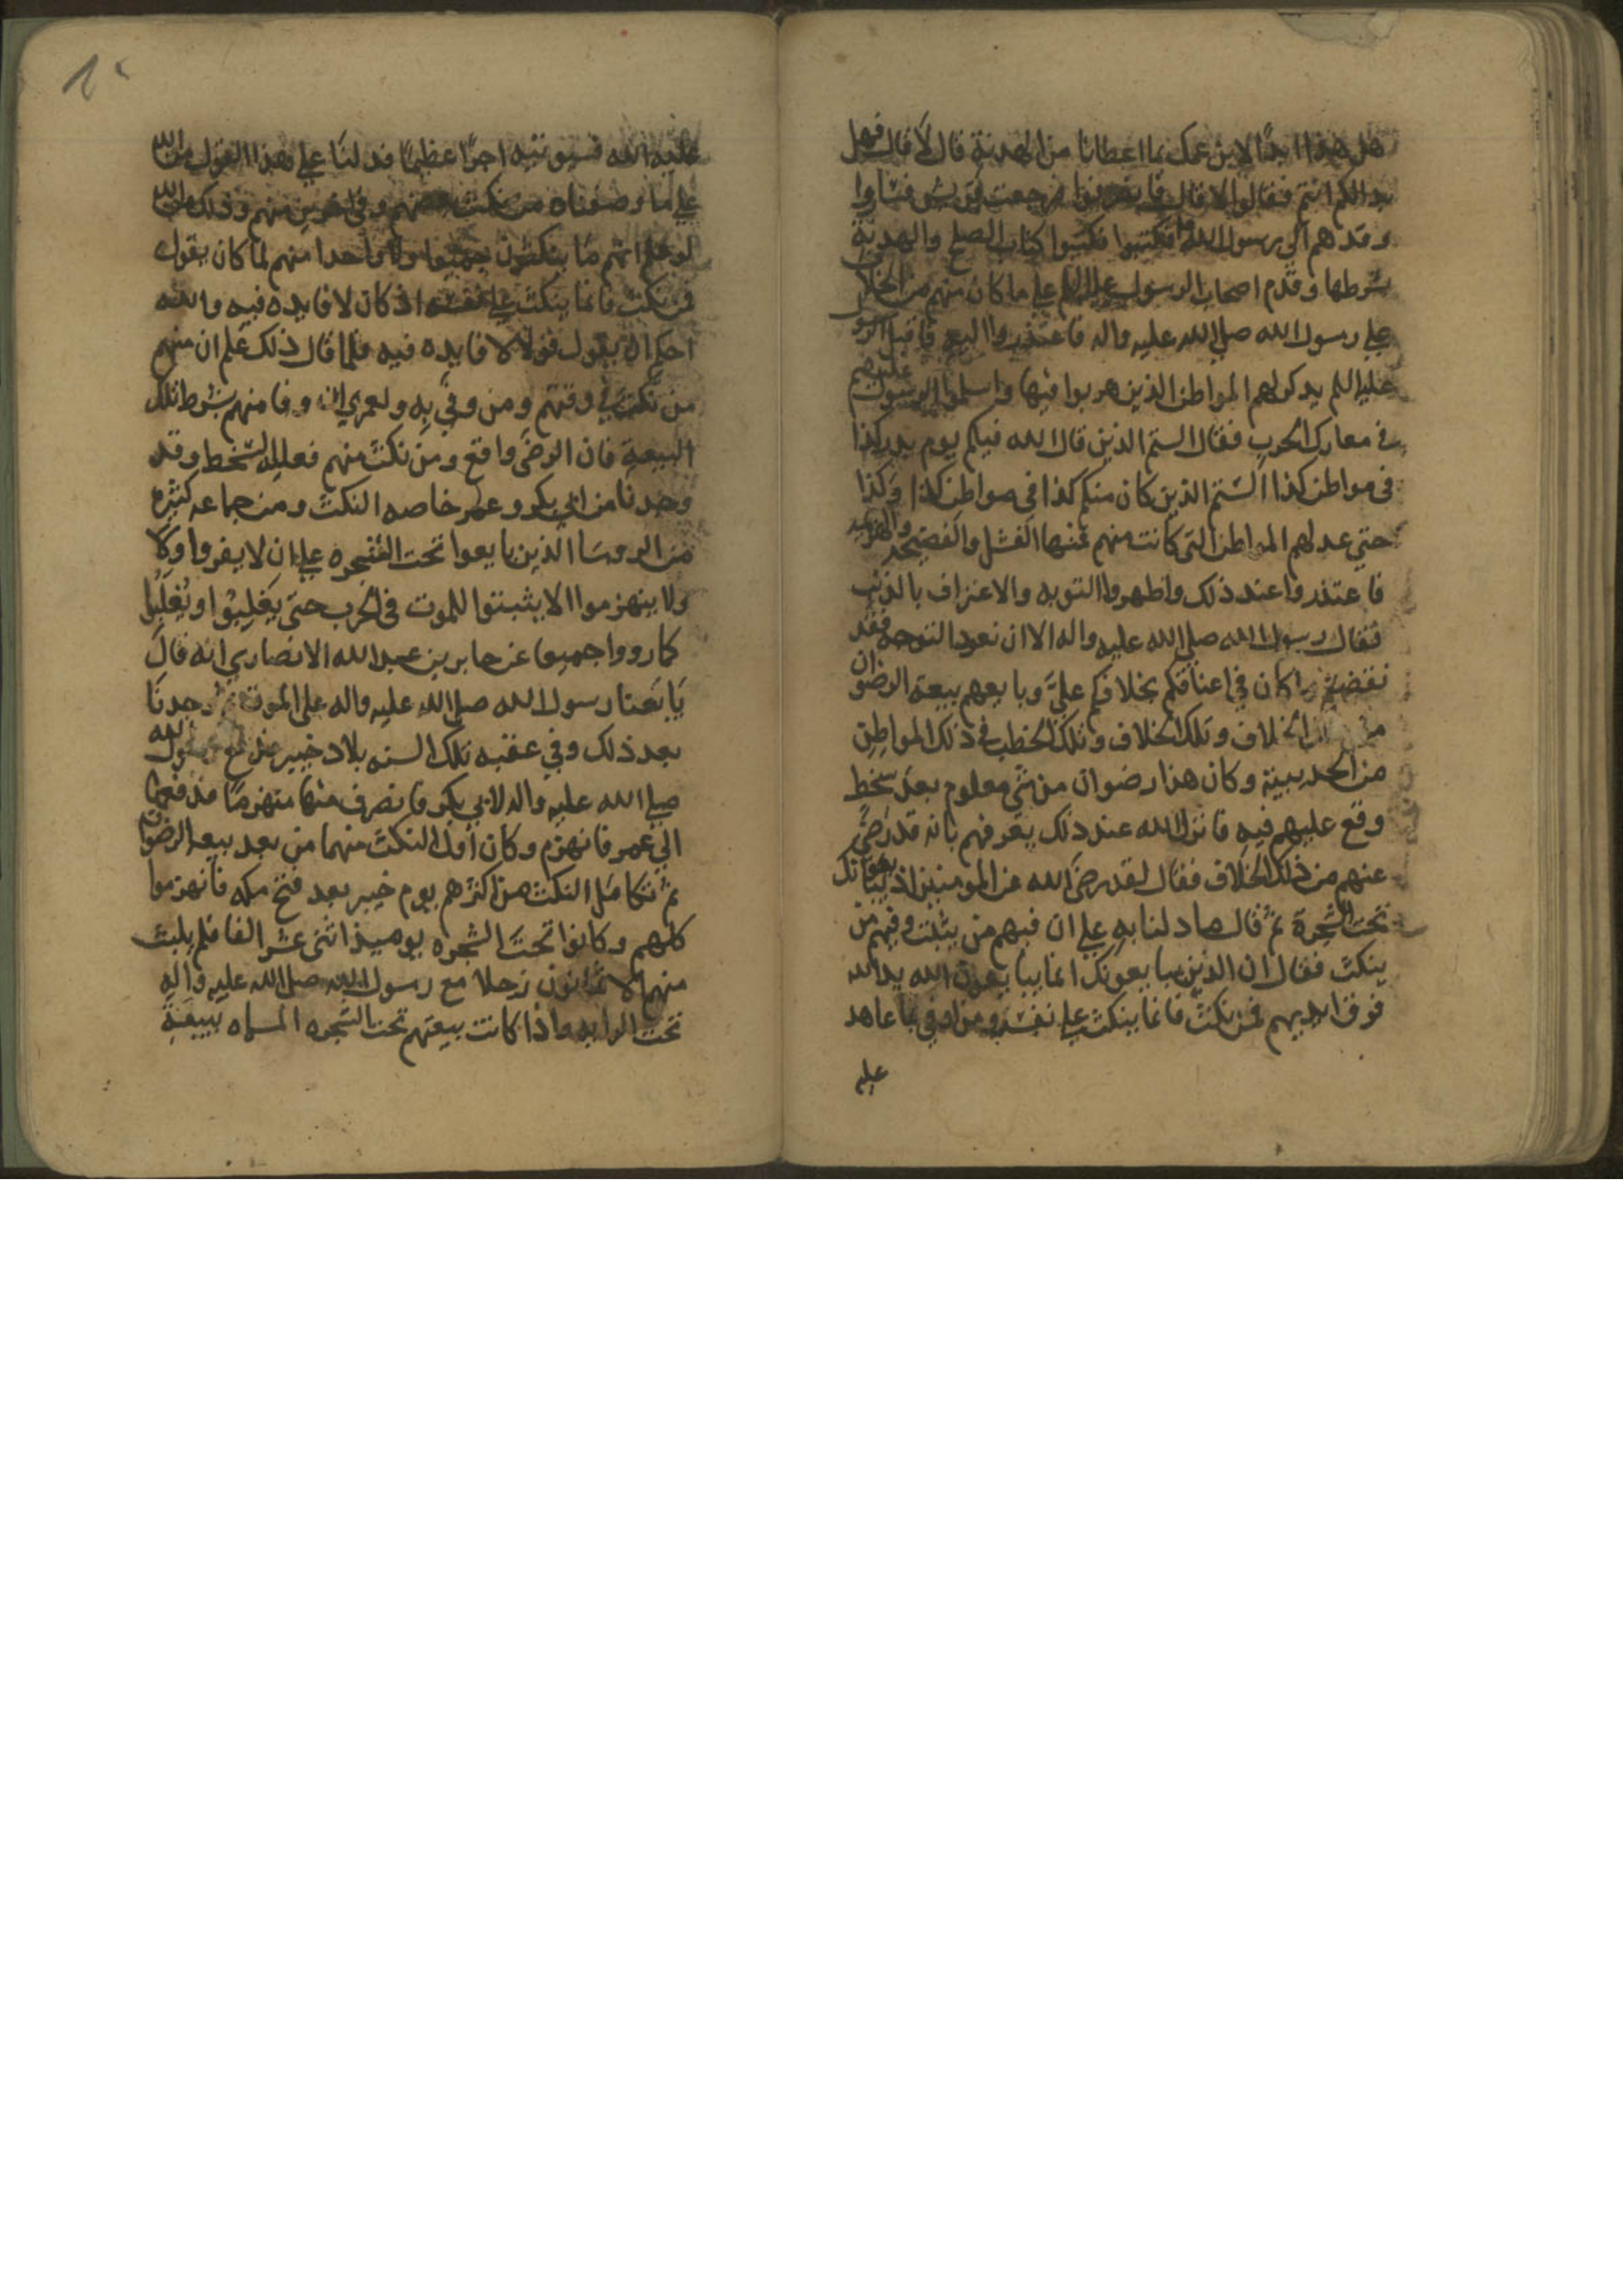 هل هذا ابدًا لابن عمك بما اعطانا من الهدنة قال لا قال فهل
بدا لكم انتم فقالوا لا قال
وقدهم الى رسول الله فكتبوا كتاب الصلح والهدنة
بشرطها وقدم اصحاب الرسول عليه السلم على ما كان منهم من الخلاف
على رسول الله صلى الله عليه واله فاعتذروا اليه فاقبل الرسول
عليه السلم يذكر لهم المواطن الذين هربوا فيها واسلموا الرسول عليهم
في معارك الحرب فقال الستم الذين قال الله فيكم يوم بدر كذا
في مواطن كذا الستم الذين كان منكم كذا في مواطن كذا وكذا
حتى عد لهم المواطن التي كانت منهم فيها الفشل والفضيحه والهزيمه
فاعتذروا عند ذلك واظهروا التوبه والاعتراف بالذنب
فقال رسول الله صلى الله عليه واله الا ان نعود التوجه فقد
نقضتم ما كان في اعناقكم بخلافكم عليّ وبايعهم بيعة الرضوان
من الخلاف وتلك الخلاف وتلك الخطب في ذلك المواطن
من الحديبية وكان هذا رضوان من شي معلوم بعد سخط
وقع عليهم فيه فانزل الله عند ذلك يعرفهم بانه قد رضي
عنهم من ذلك الخلاف فقال لقد رضي الله عن المومنين اذ يبايعونك
تحت الشجرة ثم قال ما دلنا به على ان فيهم من يثبت وفيهم من
ينكث فقال ان الذين يبايعونك انما يبايعون الله يد الله
فوق ايديهم فمن نكث فانما ينكث على نفسه ومن اوفى بما عاهد
عليه
عليه الله فسيوتيه اجرًا عظيمًا فدلنا على هذا القول من الله
على ما وصفناه من نكث بعضهم وفي اخرين منهم وذلك ان الله
لو علم انهم ما ينكثون جميعا ولا واحدا منهم لما كان يقول
فمن نكث فانما ينكث على نفسه اذ كان لا فايده فيه والله
احكم ان يقول قولا لا فايده فيه فلما قال ذلك علم ان منهم
من نكث في وقتهم ومن وفى به ولعمري ان وفا منهم بشرط تلك
البيعة فان الرضى واقع ومن نكث منهم فعليه السخط وقد
وجدنا من ابي بكر وعمر خاصه النكث ومن جماعه كثيره
من الروسا الذين بايعوا تحت الشجره على ان لا يفروا ولا
ولا ينهزموا الا يثبتوا للموت في الحرب حتى يغلبوا او يُغلبوا
كما رووا جميعا عن جابر بن عبد الله الانصاري انه قال
بايعنا رسول الله صلى الله عليه واله على الموت ثم وجدنا
بعد ذلك وفي عقبه تلك السنه بلاد خيبر رسول الله
صلى الله عليه واله لابي بكر فانصرف منها منهزمًا فدفعها
الى عمر فانهزم وكان اول النكث منهما من بعد بيعة الرضوان
ثم تكامل النكث من اكثرهم يوم خيبر بعد فتح مكه فانهزموا
كلهم وكانوا تحت الشجره يوميذ اثنى عشر الفا فلم يلبث
منهم الا ثمانون رجلا مع رسول الله صلى الله عليه واله
تحت الرايه واذا كانت بيعتهم تحت الشجره المسماه ببيعة